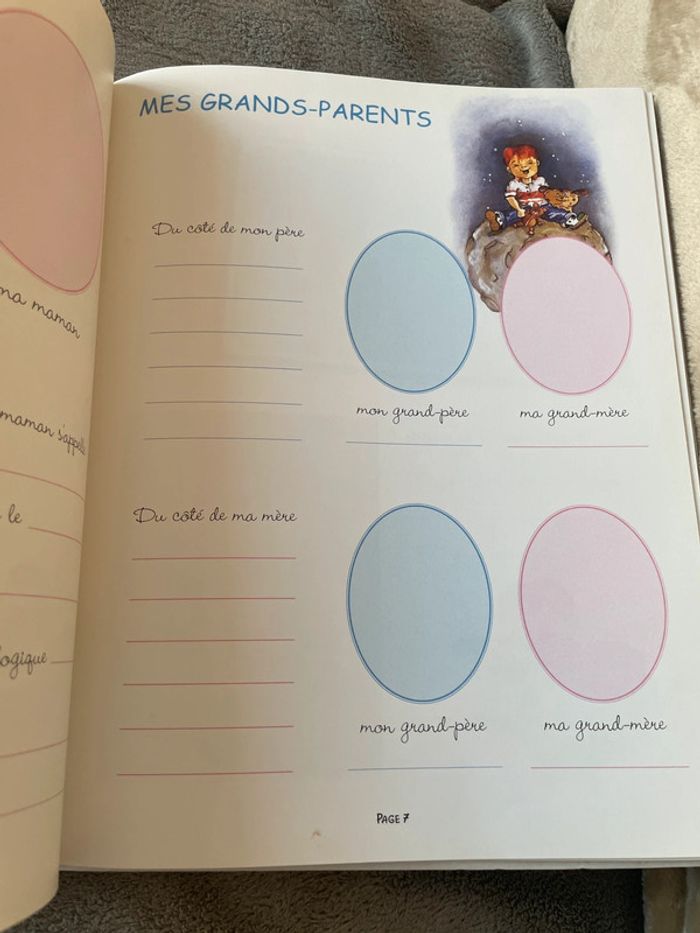 ma maman
maman s'appelle
le
MES GRANDS-PARENTS
Du côté de mon père
mon grand-père
ma grand-mère
Du côté de ma mère
mon grand-père
ma grand-mère
PAGE 7